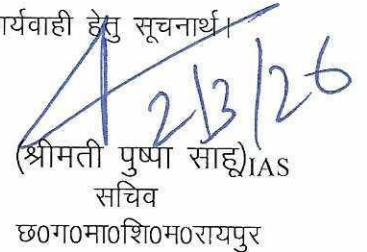 र्यवाही हेतु सूचनार्थ।
2/3/26
(श्रीमती पुष्पा साहू)IAS
सचिव
छ०ग०मा०शि०म०रायपुर